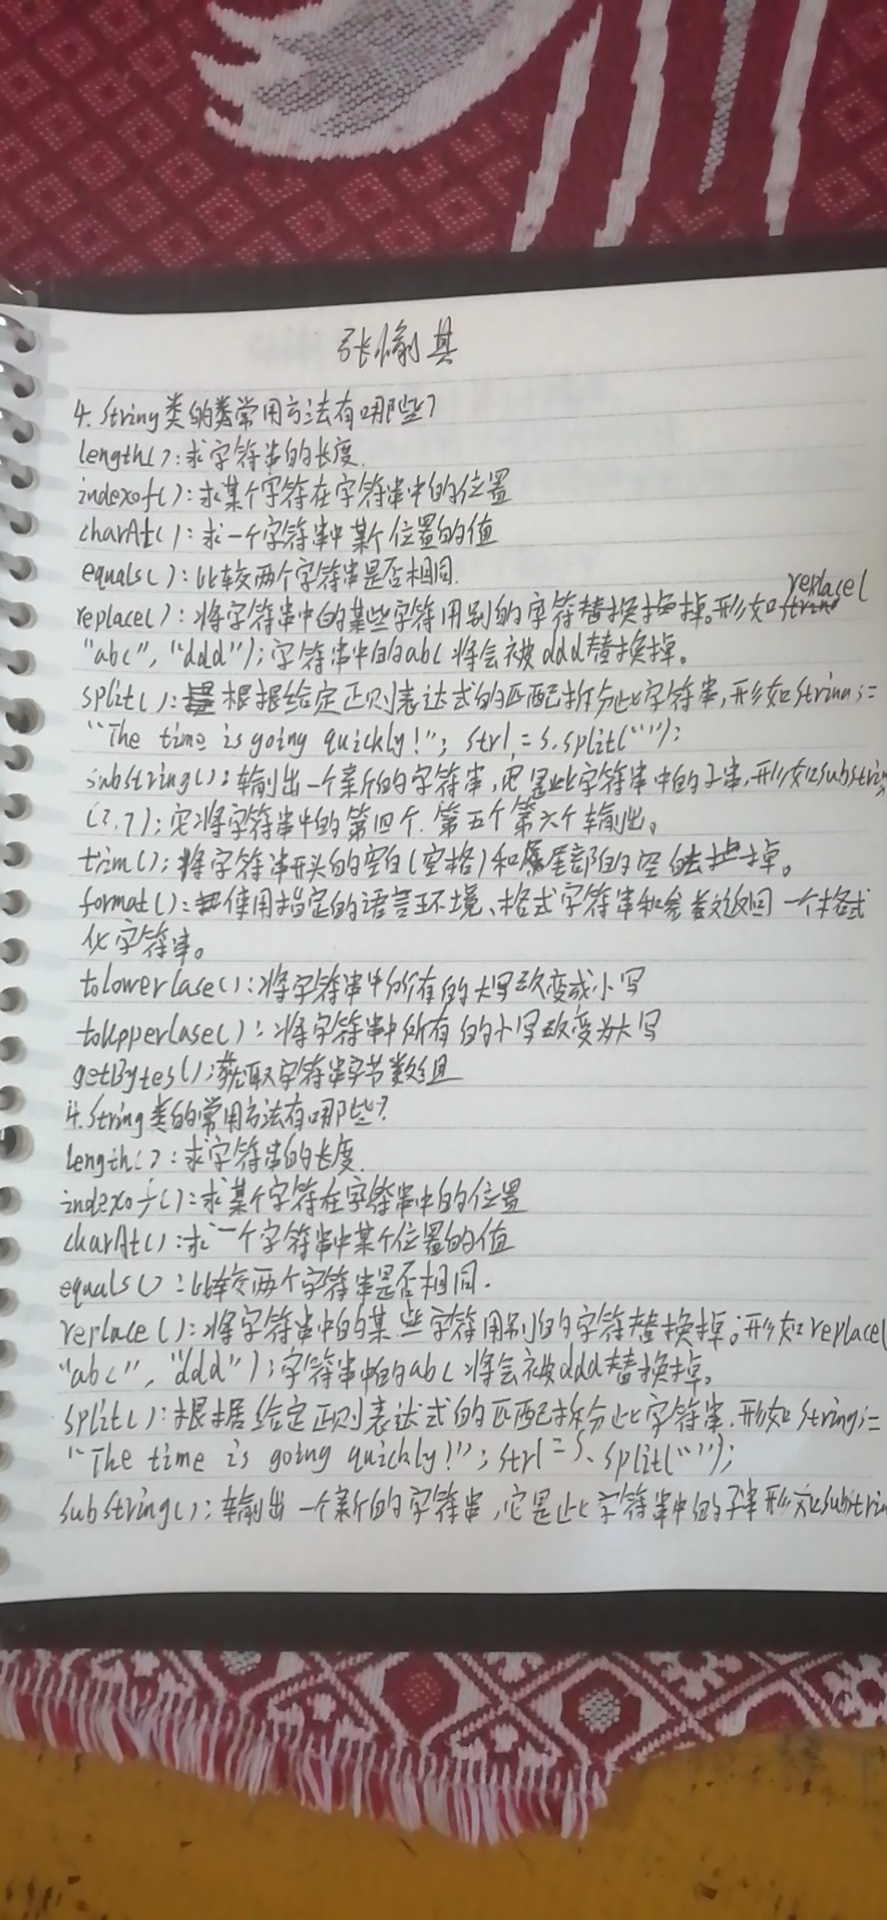 张愉其
4. String类的类常用方法有哪些?
length():求字符串的长度.
indexof():求某个字符在字符串中的位置
charAt():求一个字符串中某个位置的值
equals():比较两个字符串是否相同.
replace(
replace():将字符串中的某些字符用别的字符替换掉。形如
"abc","ddd");字符串中的abc将会被ddd替换掉。
split():根据给定正则表达式的匹配拆分此字符串,形如String s=
"The time is going quickly!"; str1=s.split("");
substring():输出一个新的字符串,它是此字符串中的子串,形如substring
(3,7);它将字符串中的第四个.第五个第六个输出。
trim();将字符串开头的空白(空格)和尾部的空白去掉。
format():使用指定的语言环境、格式字符串和参数返回一个格式
化字符串。
toLowerCase():将字符串中所有的大写改变成小写
toUpperCase():将字符串中所有的小写改变为大写
getBytes();获取字符串字节数组
4. String类的常用方法有哪些?
length():求字符串的长度.
indexof():求某个字符在字符串中的位置
charAt():求一个字符串中某个位置的值
equals():比较两个字符串是否相同.
replace():将字符串中的某些字符用别的字符替换掉。形如replace(
"abc","ddd");字符串中的abc将会被ddd替换掉。
split():根据给定正则表达式的匹配拆分此字符串.形如String s=
"The time is going quickly!"; str1=s.split("");
substring():输出一个新的字符串,它是此字符串中的子串形如substrin